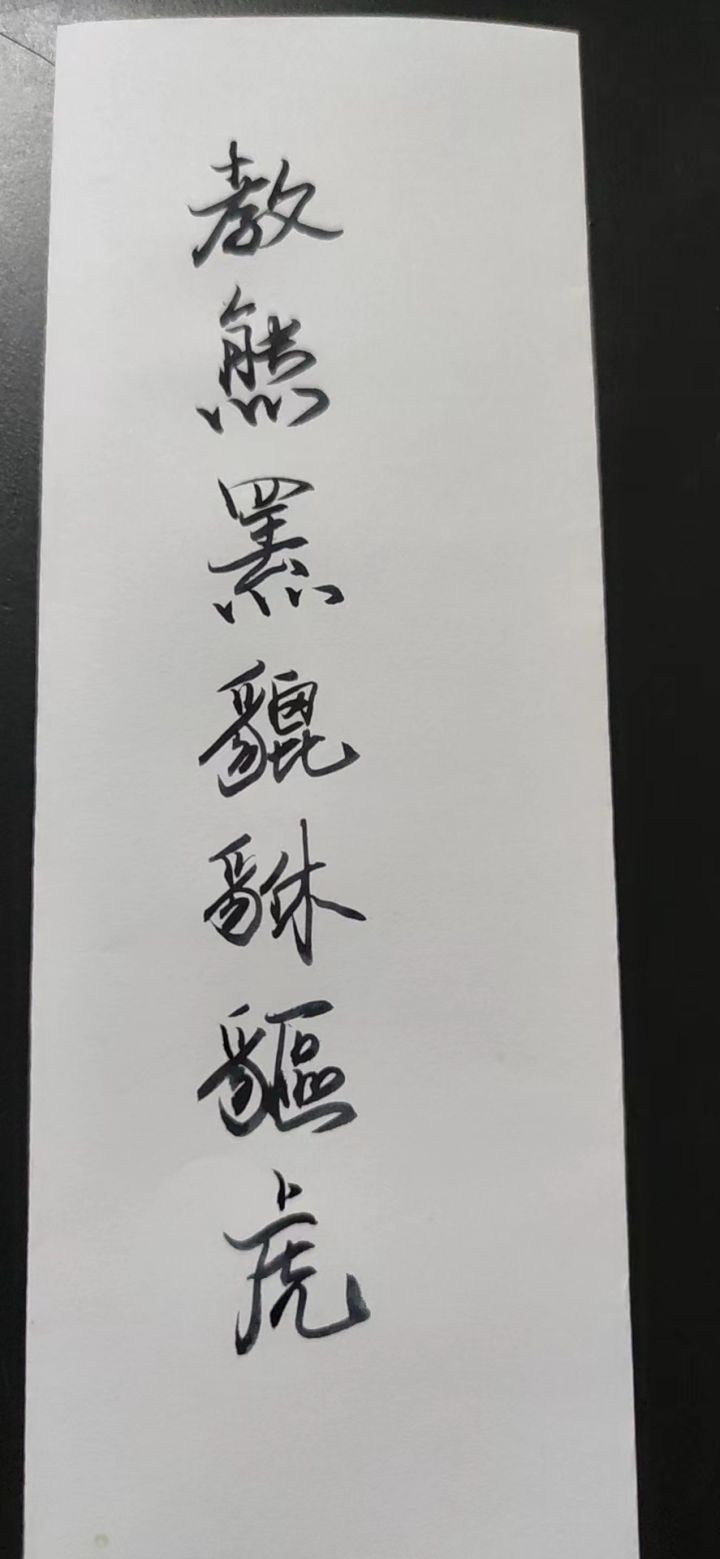 教熊羆貔貅貙虎